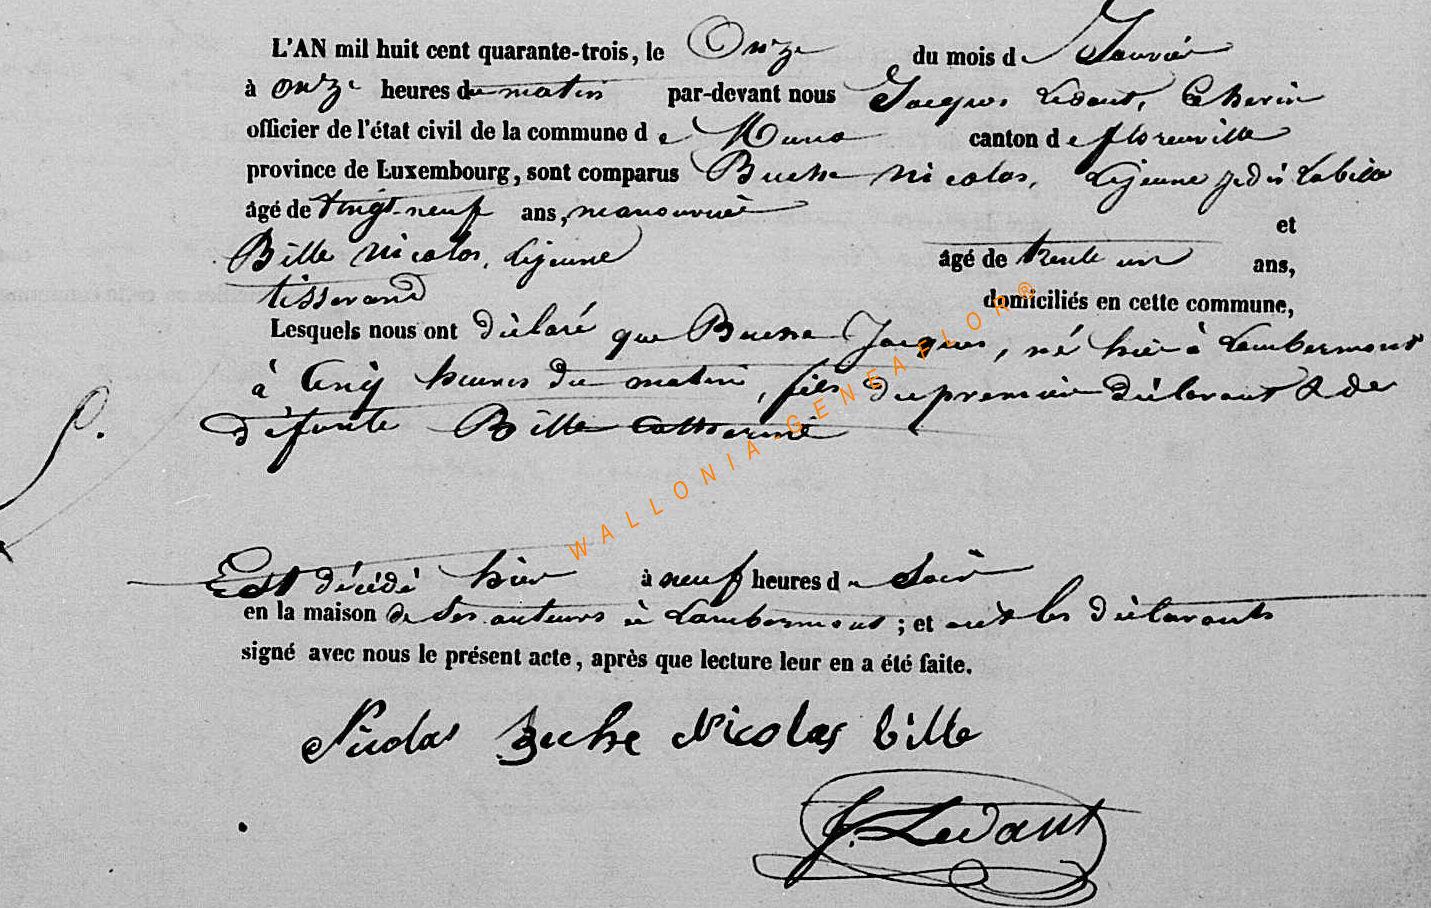 L'AN mil huit cent quarante-trois, le Onze du mois d Janvier
à onze heures du matin par-devant nous Jacques Ledant, Echevin
officier de l'état civil de la commune de Muno canton de florenville
province de Luxembourg, sont comparus Buche Nicolas, Lejeune
âgé de vingt-neuf ans, manouvrier et
Bille Nicolas, Lejeune âgé de trente un ans,
tisserand domiciliés en cette commune,
Lesquels nous ont déclaré que Buche Jacques, né hier à Lambermont
à Cinq heures du matin, fils du premier déclarant & de
défunte Bille Catherine
P.
Est décédé hier à neuf heures du Soir
en la maison de ses auteurs à Lambermont; et ont les déclarants
signé avec nous le présent acte, après que lecture leur en a été faite.
Nicolas Buche Nicolas bille
J. Ledant
WALLONIA-GENEAFLOR®